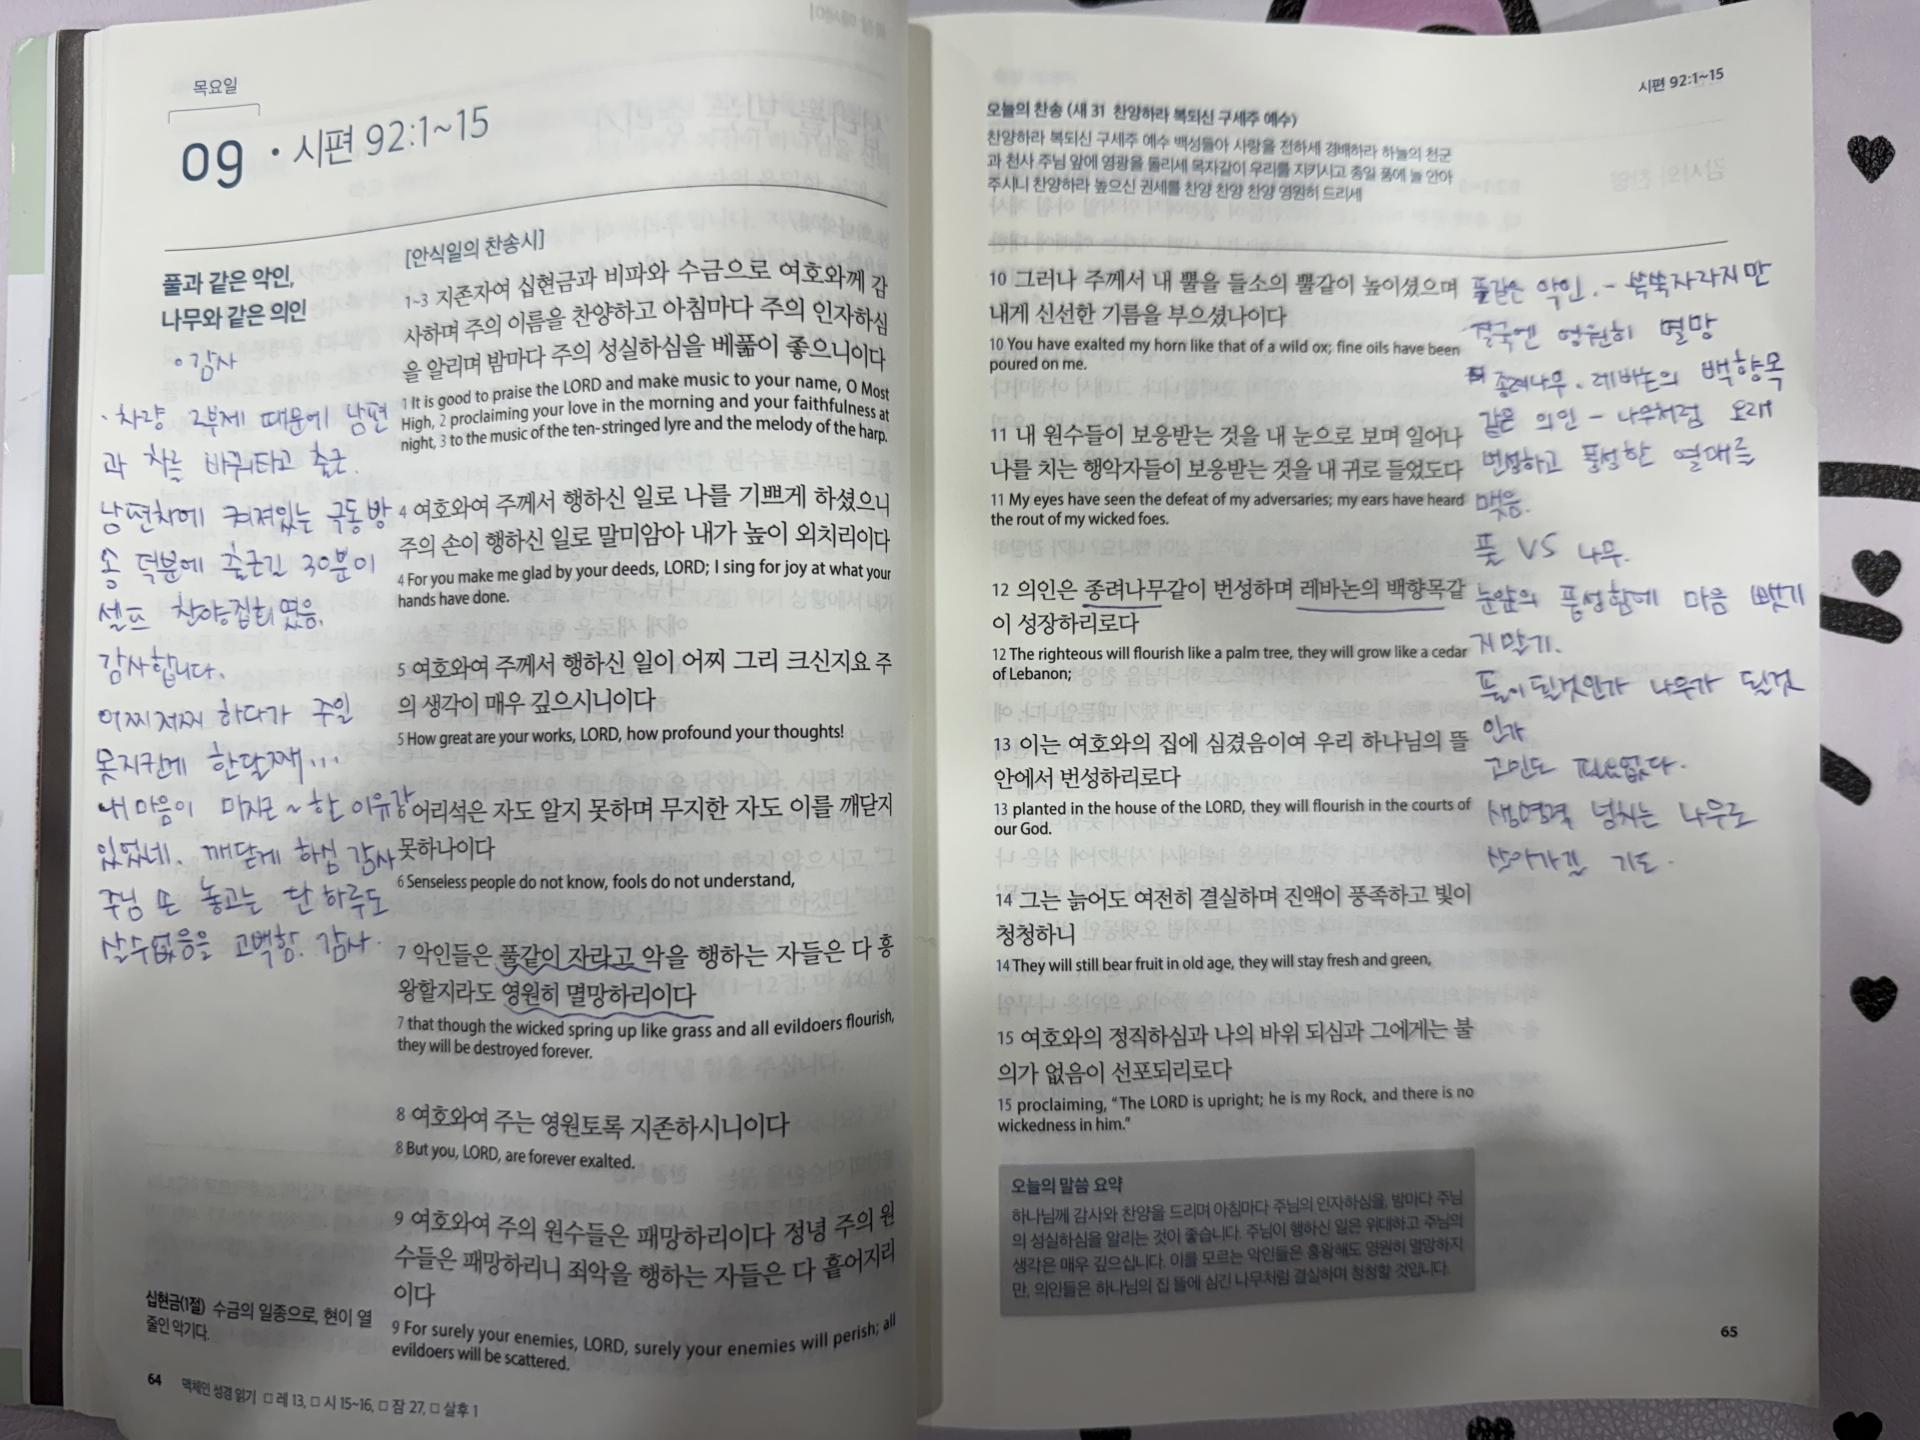 목요일
09 · 시편 92:1~15
풀과 같은 악인,
나무와 같은 의인
◦ 감사
· 차량 2부제 때문에 남편
과 차를 바꿔타고 출근.
남편차에 켜져있는 극동방
송 덕분에 출근길 30분이
셀프 찬양집회였음.
감사합니다.
어찌저찌 하다가 주일
못지킨게 한달째...
내 마음이 미지근~한 이유가
있었네. 깨닫게 하심 감사
주님 손 놓고는 단 하루도
살수없음을 고백함. 감사.
[안식일의 찬송시]
1~3 지존자여 십현금과 비파와 수금으로 여호와께 감
사하며 주의 이름을 찬양하고 아침마다 주의 인자하심
을 알리며 밤마다 주의 성실하심을 베풂이 좋으니이다
1 It is good to praise the LORD and make music to your name, O Most
High, 2 proclaiming your love in the morning and your faithfulness at
night, 3 to the music of the ten-stringed lyre and the melody of the harp.
4 여호와여 주께서 행하신 일로 나를 기쁘게 하셨으니
주의 손이 행하신 일로 말미암아 내가 높이 외치리이다
4 For you make me glad by your deeds, LORD; I sing for joy at what your
hands have done.
5 여호와여 주께서 행하신 일이 어찌 그리 크신지요 주
의 생각이 매우 깊으시니이다
5 How great are your works, LORD, how profound your thoughts!
어리석은 자도 알지 못하며 무지한 자도 이를 깨닫지
못하나이다
6 Senseless people do not know, fools do not understand,
7 악인들은 풀같이 자라고 악을 행하는 자들은 다 흥
왕할지라도 영원히 멸망하리이다
7 that though the wicked spring up like grass and all evildoers flourish,
they will be destroyed forever.
8 여호와여 주는 영원토록 지존하시니이다
8 But you, LORD, are forever exalted.
9 여호와여 주의 원수들은 패망하리이다 정녕 주의 원
수들은 패망하리니 죄악을 행하는 자들은 다 흩어지리
이다
9 For surely your enemies, LORD, surely your enemies will perish; all
evildoers will be scattered.
십현금(1절) 수금의 일종으로, 현이 열
줄인 악기다.
64 맥체인 성경 읽기 □ 레 13, □ 시 15~16, □ 잠 27, □ 살후 1
시편 92:1~15
오늘의 찬송 (새 31 찬양하라 복되신 구세주 예수)
찬양하라 복되신 구세주 예수 백성들아 사랑을 전하세 경배하라 하늘의 천군
과 천사 주님 앞에 영광을 돌리세 목자같이 우리를 지키시고 종일 품에 늘 안아
주시니 찬양하라 높으신 권세를 찬양 찬양 찬양 영원히 드리세
10 그러나 주께서 내 뿔을 들소의 뿔같이 높이셨으며
내게 신선한 기름을 부으셨나이다
10 You have exalted my horn like that of a wild ox; fine oils have been
poured on me.
11 내 원수들이 보응받는 것을 내 눈으로 보며 일어나
나를 치는 행악자들이 보응받는 것을 내 귀로 들었도다
11 My eyes have seen the defeat of my adversaries; my ears have heard
the rout of my wicked foes.
12 의인은 종려나무같이 번성하며 레바논의 백향목같
이 성장하리로다
12 The righteous will flourish like a palm tree, they will grow like a cedar
of Lebanon;
13 이는 여호와의 집에 심겼음이여 우리 하나님의 뜰
안에서 번성하리로다
13 planted in the house of the LORD, they will flourish in the courts of
our God.
14 그는 늙어도 여전히 결실하며 진액이 풍족하고 빛이
청청하니
14 They will still bear fruit in old age, they will stay fresh and green,
15 여호와의 정직하심과 나의 바위 되심과 그에게는 불
의가 없음이 선포되리로다
15 proclaiming, “The LORD is upright; he is my Rock, and there is no
wickedness in him.”
풀같은 악인. - 쑥쑥자라지만
결국엔 영원히 멸망
종려나무 · 레바논의 백향목
같은 의인 - 나무처럼 오래
번성하고 풍성한 열매를
맺음.
풀 VS 나무.
눈앞의 풍성함에 마음 뺏기
지 말기.
풀이 될것인가 나무가 될것
인가
고민도 필요없다.
생명력 넘치는 나무로
살아가길 기도.
오늘의 말씀 요약
하나님께 감사와 찬양을 드리며 아침마다 주님의 인자하심을, 밤마다 주님
의 성실하심을 알리는 것이 좋습니다. 주님이 행하신 일은 위대하고 주님의
생각은 매우 깊으십니다. 이를 모르는 악인들은 흥왕해도 영원히 멸망하지
만, 의인들은 하나님의 집 뜰에 심긴 나무처럼 결실하며 청청할 것입니다.
65